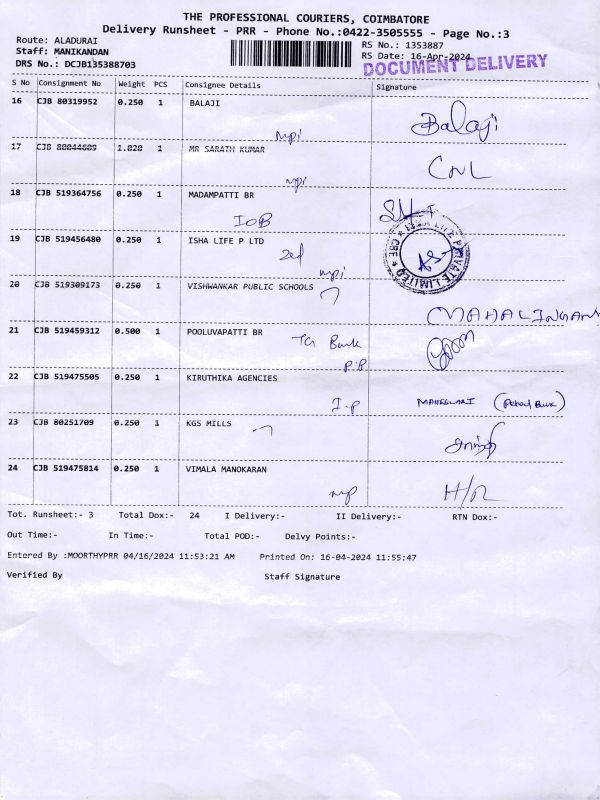 THE PROFESSIONAL COURIERS, COIMBATORE
Delivery Runsheet - PRR - Phone No.:0422-3505555 - Page No.:3
Route: ALADURAI
RS No.: 1353887
Staff: MANIKANDAN
RS Date: 16-Apr-2024
DRS No.: DCJB135388703
DOCUMENT DELIVERY
S No Consignment No Weight PCS Consignee Details Signature
16 CJB 80319952 0.250 1 BALAJI
mpi Balaji
17 CJB 80044609 1.020 1 MR SARATH KUMAR
mpi CNL
18 CJB 519364756 0.250 1 MADAMPATTI BR
IOB
19 CJB 519456480 0.250 1 ISHA LIFE P LTD
mpi
ISHA LIFE PRIVATE LIMITED ★ CBE ★
20 CJB 519309173 0.250 1 VISHWANKAR PUBLIC SCHOOLS
MAHALINGAM
21 CJB 519459312 0.500 1 POOLUVAPATTI BR
Bank
P.P
22 CJB 519475505 0.250 1 KIRUTHIKA AGENCIES
I.P MAHESWARI (Petrol Bunk)
23 CJB 80251709 0.250 1 KGS MILLS
24 CJB 519475814 0.250 1 VIMALA MANOKARAN
mp H/R
Tot. Runsheet:- 3 Total Dox:- 24 I Delivery:- II Delivery:- RTN Dox:-
Out Time:- In Time:- Total POD:- Delvy Points:-
Entered By :MOORTHYPRR 04/16/2024 11:53:21 AM Printed On: 16-04-2024 11:55:47
Verified By Staff Signature